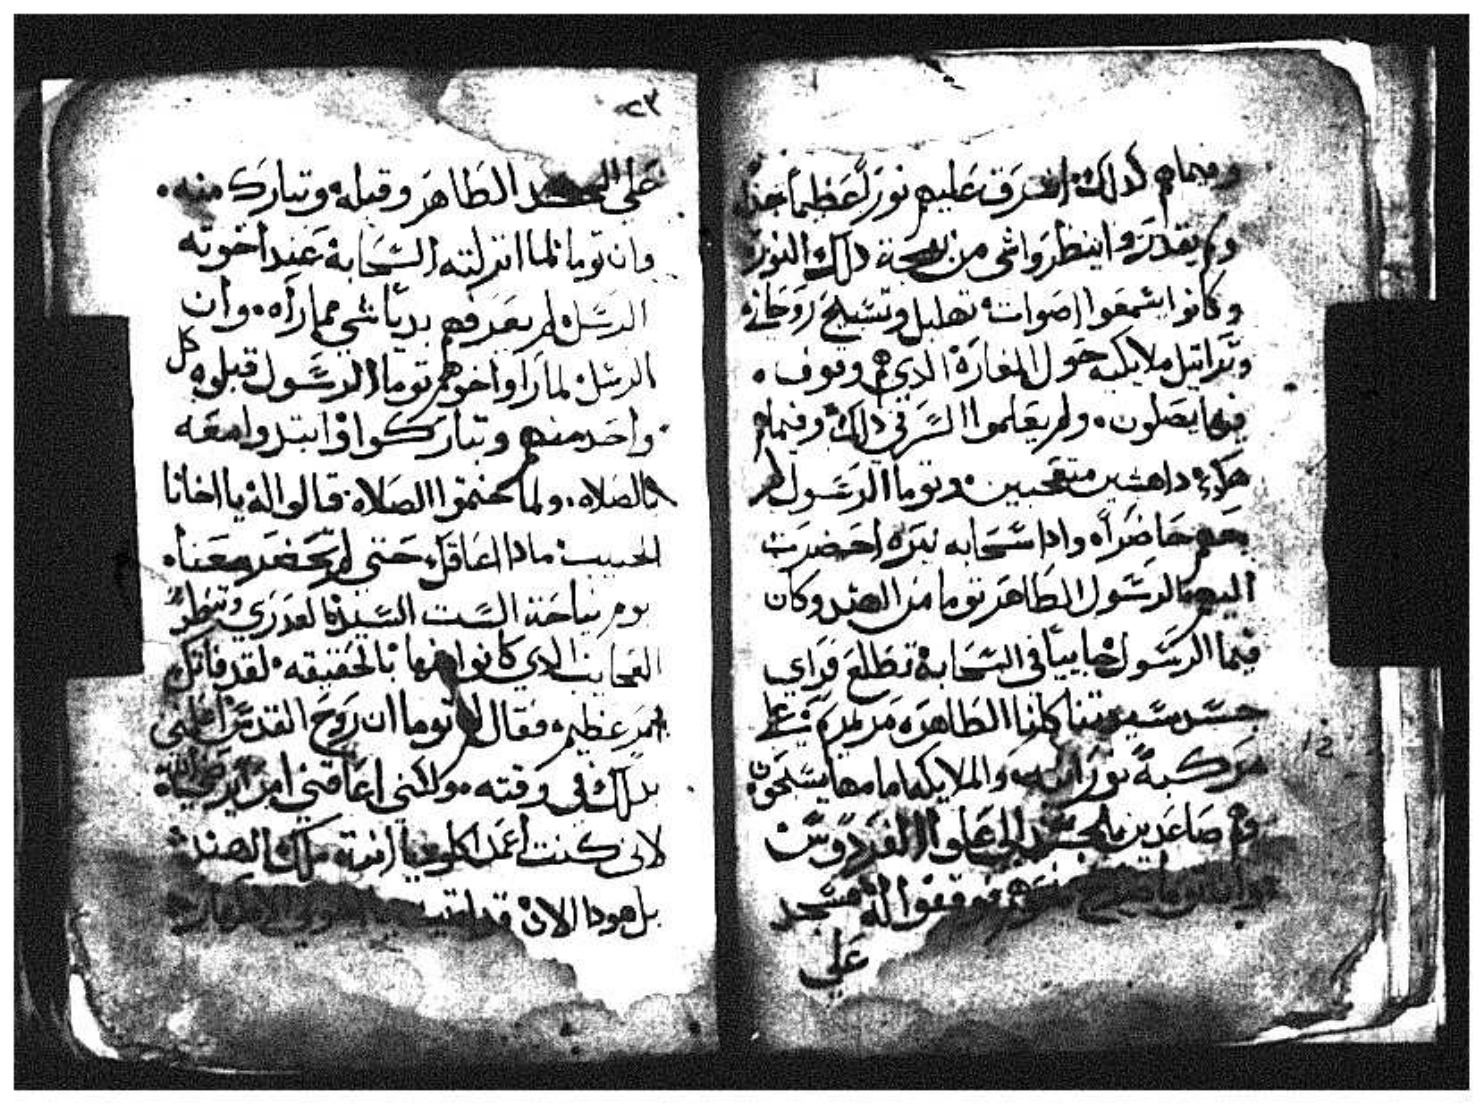 وفيماهم كدلك اشرق عليهم نورًا عظيماً جدًا
ولم يقدروا ينظروا شي من بهجة دلك النور
وكانوا يسمعوا اصوات تهليل وتسبيح روحانيه
وتراتيل ملايكه حول المغارة الدي هم وقوف
فيها يصلون ولم يعلموا السر في دلك وفيماهم
هكدا داهشين متعجبين وتوما الرسول لم
معهم حاضراً وادا سحابه نيره احضرت
اليهم الرسول الطاهر توما من الهند وكان
فيما الرسول جاييا في السحابة تطلع فراي
جسد ستنا كلنا الطاهره مرتمريم على
مركبة نورانيه والملايكه امامها يسبحون
وهم صاعدين بالجسد الي علو الفردوس
وان توما فوقفوا له فسجد
علي
٢٣
علي الجسد الطاهر وقبله وتبارك منه
وان توما لما انزلته السحابة عند اخوته
الرسل لم يعرفهم بدياً شي مما رآه وان
الرسل لما راوا اخوهم توما الرسول قبلوه كل
واحد منهم وتباركوا وابتدوا معه
بالصلاه ولما ختموا الصلاه قالوا له يا اخانا
الحبيب مادا اعاقك حتي لم تحضر معنا
يوم نياحة الست السيدة العدري وتنظر
العجايب الدي كانوا بالحقيقه لقد فاتك
امر عظيم فقال لهم توما ان روح القدس اعلمني
بدلك في وقته ولكني اعاقني امر
لاني كنت اعمد ابنة ملك الهند
بل هودا الان قد اتيت
12